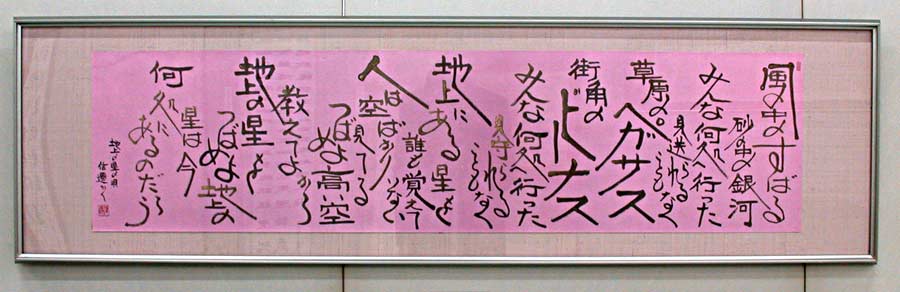 風の中のすばる
砂の中の銀河
みんな何処へ行った
見送られることもなく
草原の
ペガサス
街角の
ビーナス
みんな何処へ行った
見守られることもなく
地上にある星を
誰も覚えていない
人は空ばかり見てる
つばめよ高空
から
教えてよ
地上の星を
つばめよ地上の
星は今
何処に
あるのだろう
地上の星の唄